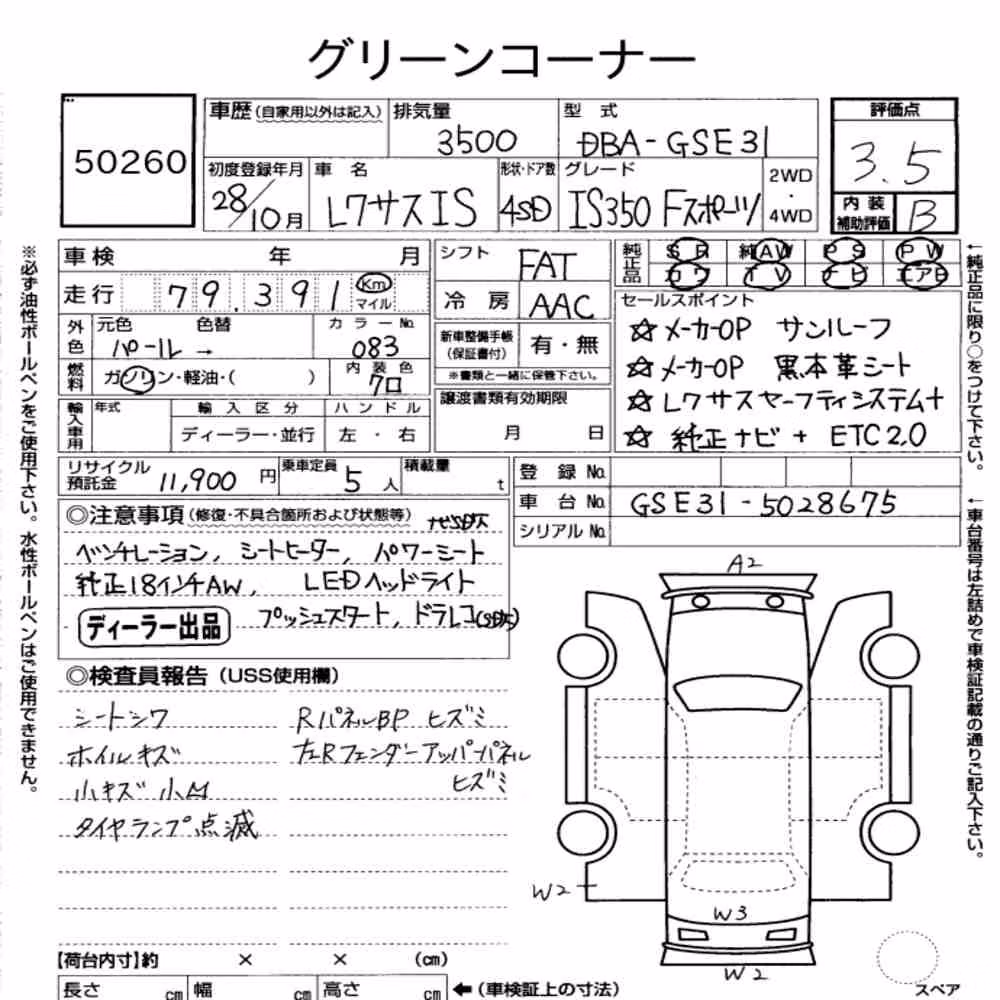 グリーンコーナー
50260
車歴(自家用以外は記入) 排気量 3500 型 式 DBA-GSE31 評価点 3.5
初度登録年月 28/10月 車 名 レクサスIS 形状・ドア数 4SD グレード IS350 Fスポーツ 2WD・4WD 内 装 補助評価 B
車検 年 月 シフト FAT 純正品 SR 純AW PS PW
カワ TV ナビ エアB
走行 79,391 Km マイル 冷 房 AAC
外色 元色 パール 色替 → カラーNo. 083
新車整備手帳 (保証書付) 有・無
※書類と一緒に保管下さい。
燃料 ガソリン・軽油・( ) 内 装 色 クロ
輸入車用 年式 輸 入 区 分 ハ ン ド ル
ディーラー・並行 左 ・ 右
譲渡書類有効期限
月 日
セールスポイント
☆メーカーOP サンルーフ
☆メーカーOP 黒本革シート
☆レクサスセーフティシステム+
☆純正ナビ + ETC2.0
リサイクル預託金 11,900 円 乗車定員 5 人 積載量 t
登 録 No.
車 台 No. GSE31-5028675
シリアル No.
◎注意事項(修復・不具合箇所および状態等)
ベンチレーション, シートヒーター, パワーシート
純正18インチAW, LEDヘッドライト
ディーラー出品 プッシュスタート, ドラレコ
◎検査員報告(USS使用欄)
シートシワ RパネルBP ヒズミ
ホイルキズ 左Rフェンダーアッパーパネル
ヒズミ
小キズ 小凹
タイヤランプ点滅
A2
W2
W3
W2
スペア
【荷台内寸】約 × × (cm)
長さ cm 幅 cm 高さ cm ←(車検証上の寸法)
※必ず油性ボールペンをご使用下さい。水性ボールペンはご使用できません。
←純正品に限り○をつけて下さい。
←車台番号は左詰めで車検証記載の通りご記入下さい。